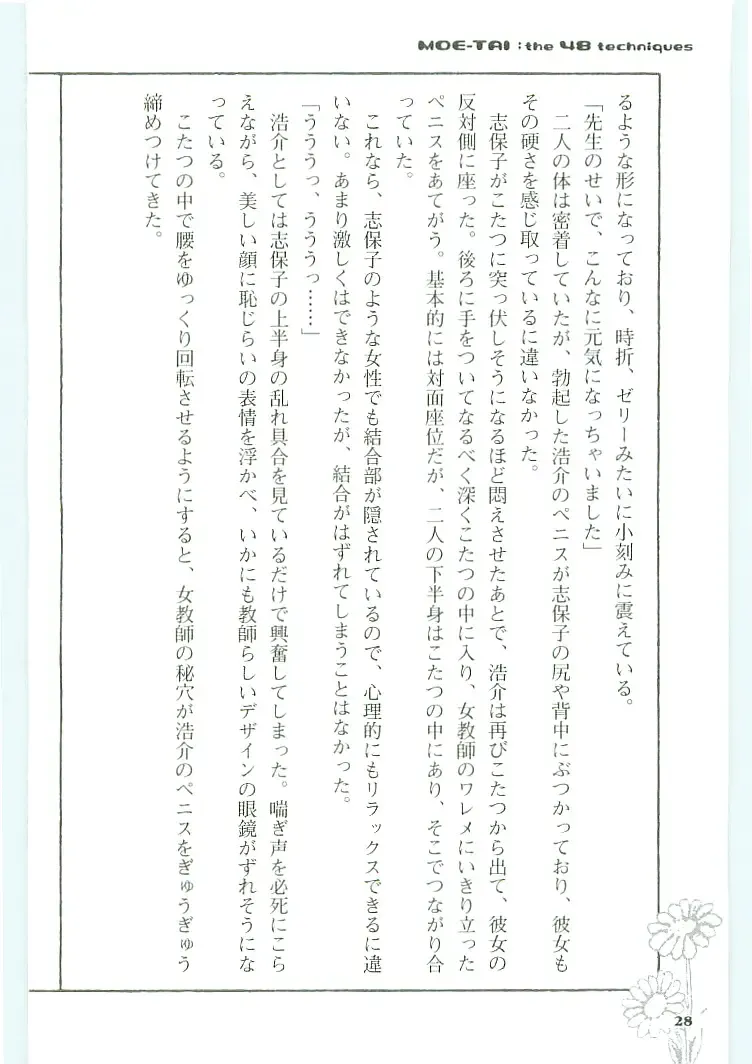 MOE-TAI : the 48 techniques
るような形になっており、時折、ゼリーみたいに小刻みに震えている。
「先生のせいで、こんなに元気になっちゃいました」
二人の体は密着していたが、勃起した浩介のペニスが志保子の尻や背中にぶつかっており、彼女も
その硬さを感じ取っているに違いなかった。
志保子がこたつに突っ伏しそうになるほど悶えさせたあとで、浩介は再びこたつから出て、彼女の
反対側に座った。後ろに手をついてなるべく深くこたつの中に入り、女教師のワレメにいきり立った
ペニスをあてがう。基本的には対面座位だが、二人の下半身はこたつの中にあり、そこでつながり合
っていた。
これなら、志保子のような女性でも結合部が隠されているので、心理的にもリラックスできるに違
いない。あまり激しくはできなかったが、結合がはずれてしまうことはなかった。
「うううっ、うううっ……」
浩介としては志保子の上半身の乱れ具合を見ているだけで興奮してしまった。喘ぎ声を必死にこら
えながら、美しい顔に恥じらいの表情を浮かべ、いかにも教師らしいデザインの眼鏡がずれそうにな
っている。
こたつの中で腰をゆっくり回転させるようにすると、女教師の秘穴が浩介のペニスをぎゅうぎゅう
締めつけてきた。
28